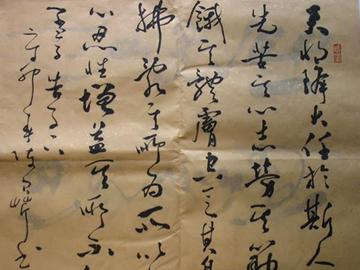 天将降大任於斯人
先苦其心志勞其筋
餓其體膚空乏其身
拂亂其所為所以
心忍性增益其所不
孟子告子下
卯書